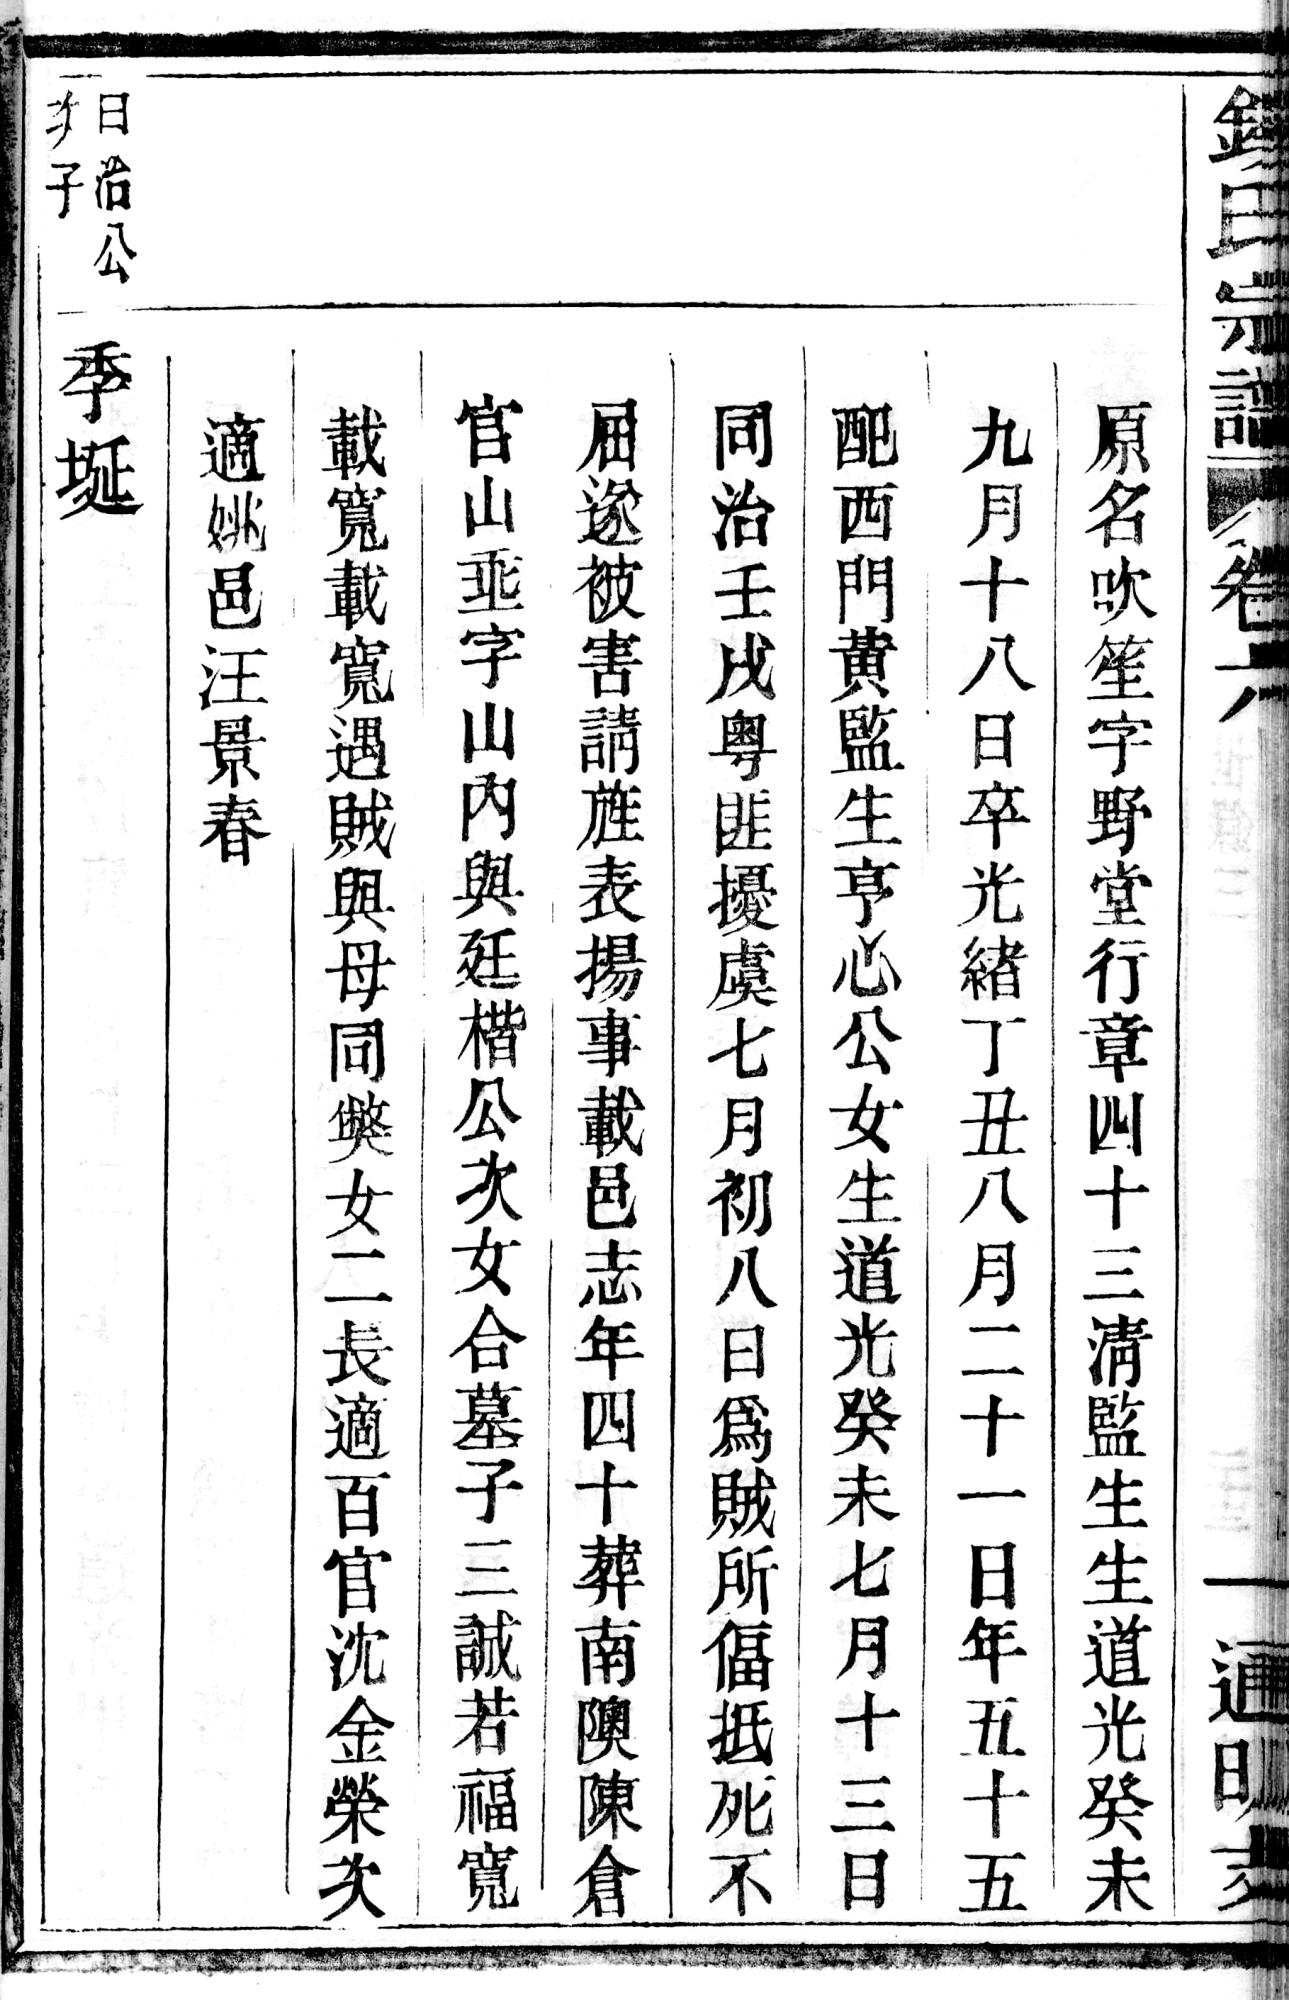 氏宗譜 卷六 一 通明
原名吹笙字野堂行章四十三淸監生生道光癸未
九月十八日卒光緖丁丑八月二十一日年五十五
配西門黄監生亨心公女生道光癸未七月十三日
同治壬戌粤匪擾虞七月初八日爲賊所偪抵死不
屈遂被害請旌表揚事載邑志年四十葬南隩陳倉
官山乖字山內與廷楷公次女合墓子三誠若福寬
載寬載寬遇賊與母同斃女二長適百官沈金榮次
適姚邑汪景春
曰治公
次子
季埏